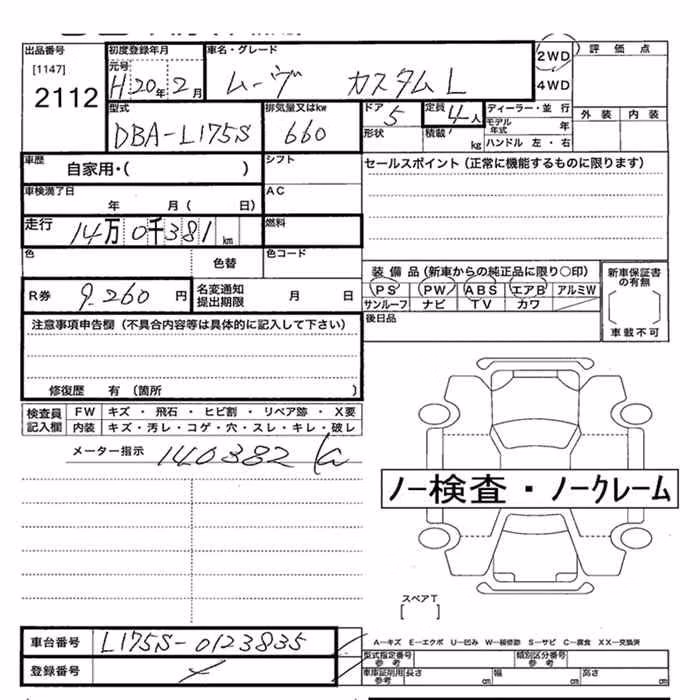 出品番号 初度登録年月 車名・グレード 2WD 評価点
[1147] 元号 H20年2月 ムーヴ カスタムL 4WD
2112 外装 内装
型式 排気量又はkw ドア 5 定員 4人 ディーラー・並行
DBA-L175S 660 形状 積載 kg モデル年式 年
ハンドル 左・右
車歴 自家用・( ) シフト セールスポイント(正常に機能するものに限ります)
車検満了日 年 月( 日) AC
走行 14万0千381km 燃料
色 色替 色コード
装備品(新車からの純正品に限り○印) 新車保証書の有無
R券 9,260円 名変通知提出期限 月 日 PS PW ABS エアB アルミW
サンルーフ ナビ TV カワ
注意事項申告欄(不具合内容等は具体的に記入して下さい) 後日品 車載不可
修復歴 有 (箇所 )
検査員記入欄 FW キズ ・ 飛石 ・ ヒビ割 ・ リペア跡 ・ X要
内装 キズ・汚レ・コゲ・穴・スレ・キレ・破レ
メーター指示 140382
ノー検査・ノークレーム
スペアT
[ ]
車台番号 L175S-0123835 A―キズ E―エクボ U―凹み W―補修跡 S―サビ C―腐食 XX―交換済
型式指定番号 参考 類別区分番号 参考
登録番号 車庫証明用 参考 長さ cm 幅 cm 高さ cm